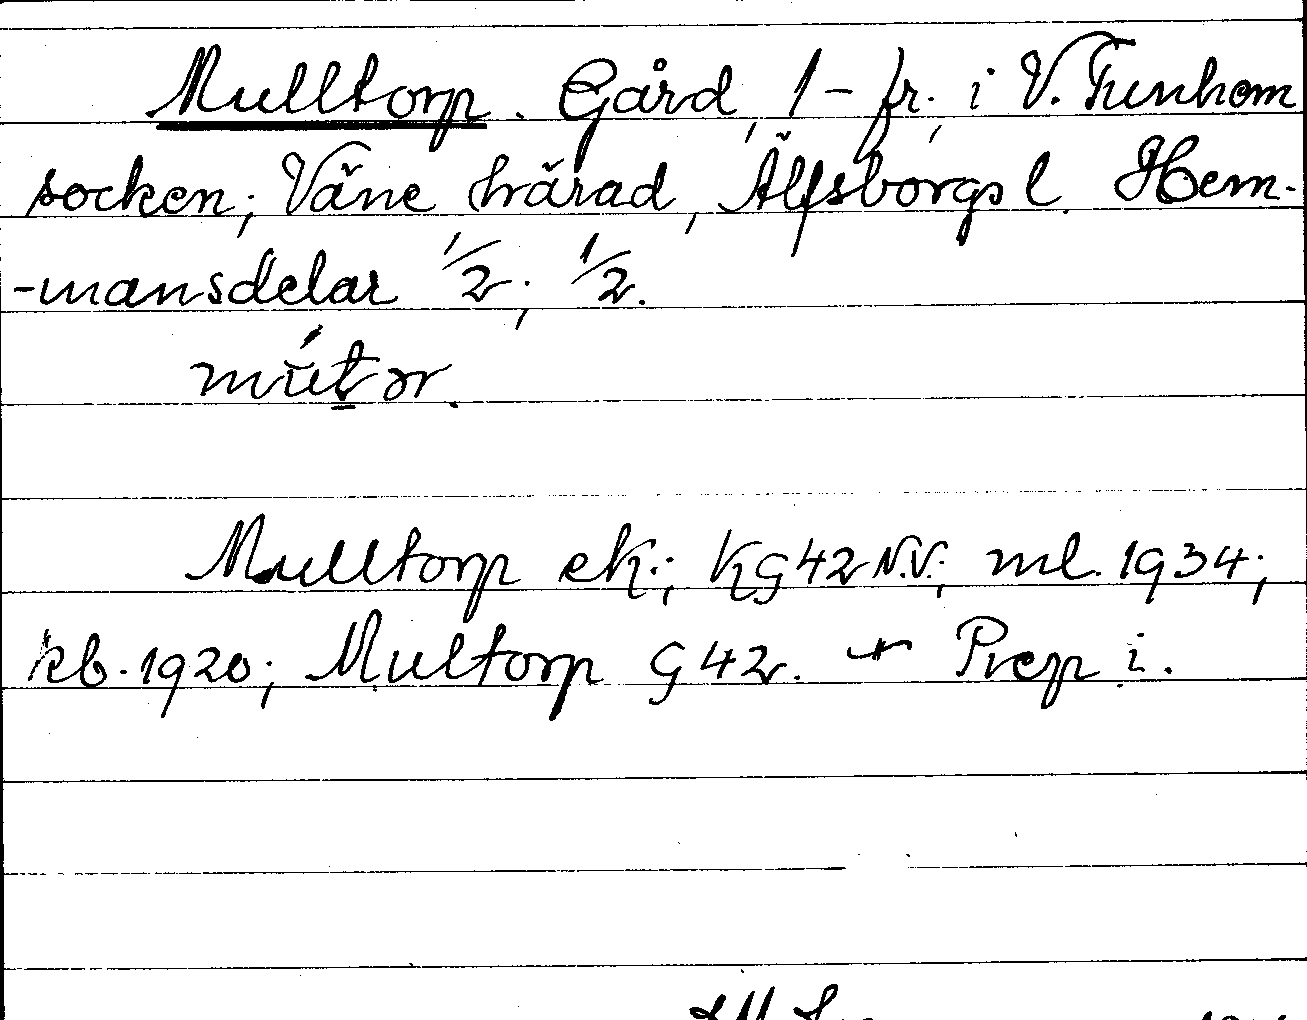 Mulltorp. Gård, 1 - fr., i V. Tunhem
socken; Väne härad, Älfsborgs l. Hem-
-mansdelar 1/2; 1/2.
mútər.
Mulltorp ek.; KG42 N.V.; ml. 1934;
kb. 1920; Multorp G42. - Prep i.